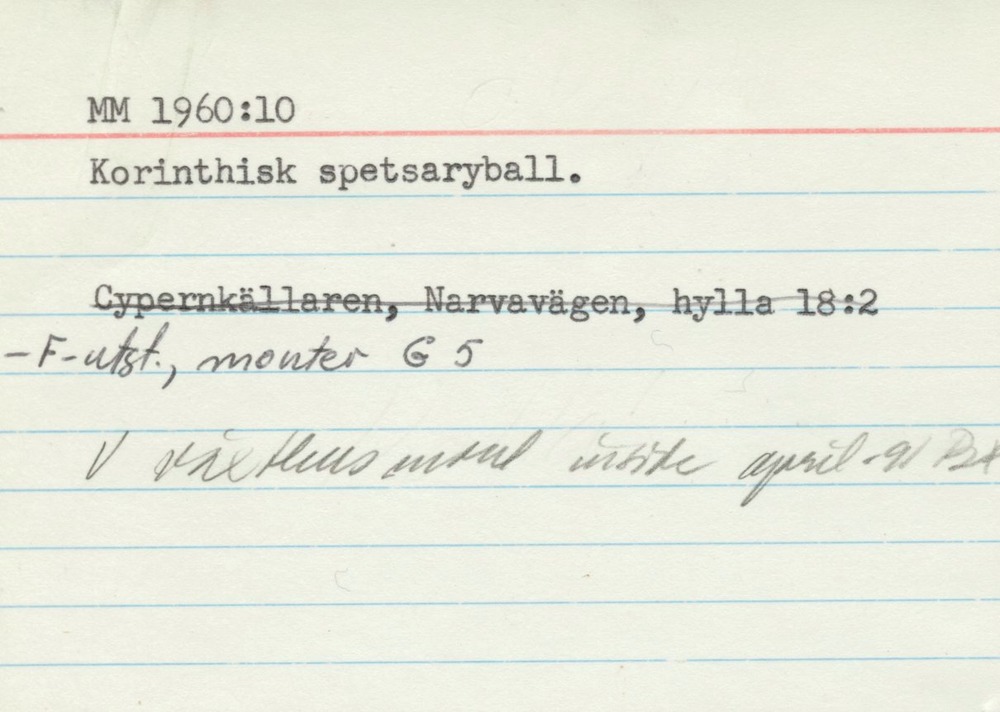 MM 1960:10
Korinthisk spetsaryball.
Cypernkällaren, Narvavägen, hylla 18:2
-F-utst., monter G 5
V växthus april -91